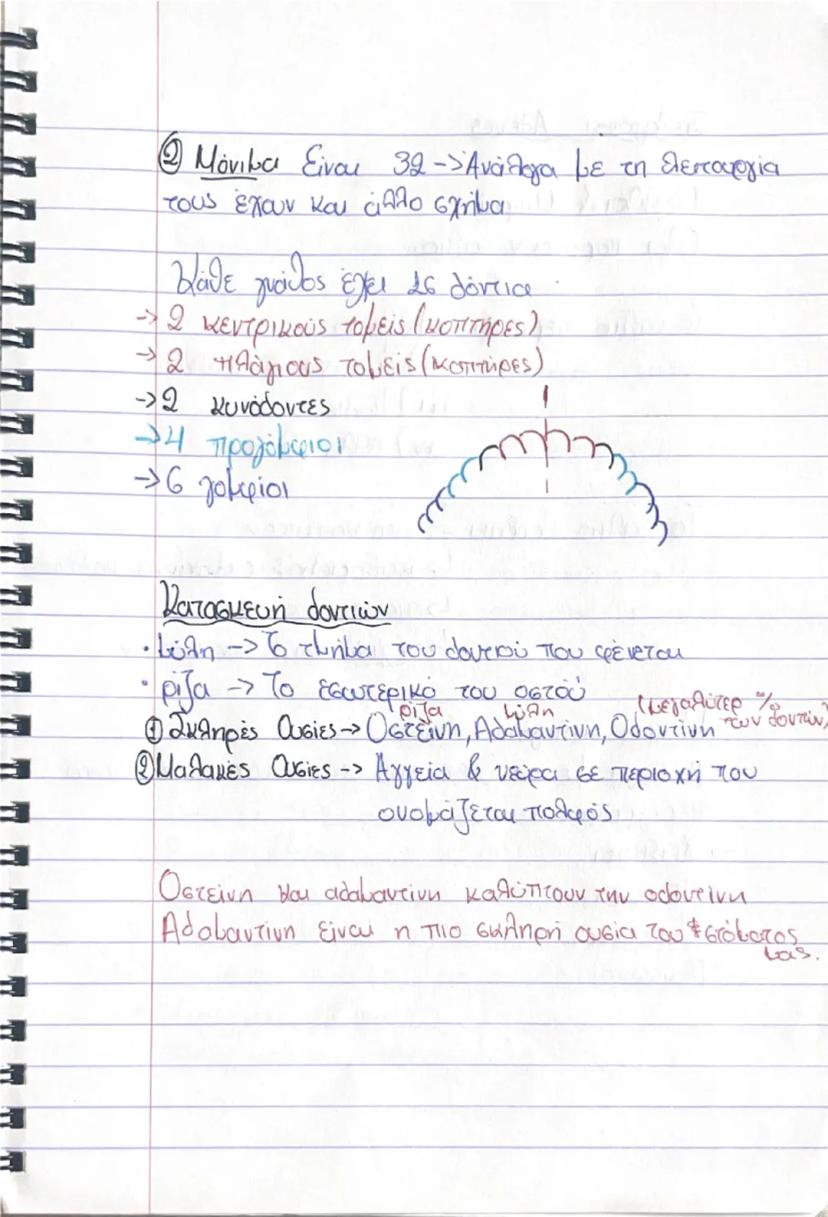 ② Μόνιμα Είναι 32 -> Ανάλογα με τη λειτουργία
τους έχουν και άλλο σχήμα
Κάθε γνάθος έχει 16 δόντια
-> 2 κεντρικούς τομείς (κοπτήρες)
-> 2 πλάγιους τομείς (κοπτήρες)
-> 2 κυνόδοντες
-> 4 προγόμφιοι
-> 6 γομφίοι
Κατασκευή δοντιών
• μύλη -> Το τμήμα του δοντιού που φένεται
• ρίζα -> Το εσωτερικό του οστού
ρίζα μύλη (μεγαλύτερ %
① Σκληρές Ουσίες -> Οστεΐνη, Αδαμαντίνη, Οδοντίνη των δοντιών)
② Μαλακές Ουσίες -> Αγγεία & νεύρα σε περιοχή που
ονομάζεται πολφός
Οστεΐνη και αδαμαντίνη καλύπτουν την οδοντίνη
Αδαμαντίνη είναι η πιο σκληρή ουσία του στόματος
μας.